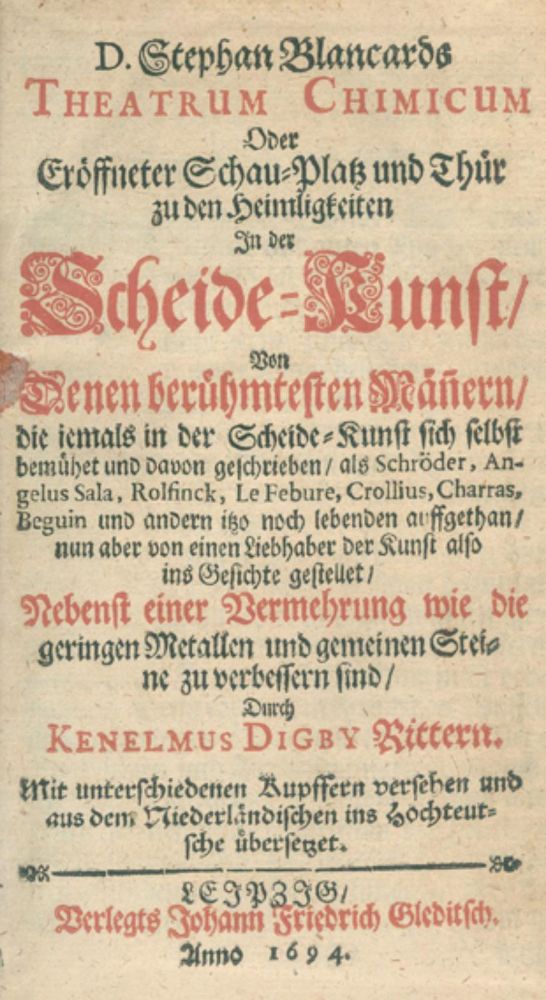 D. Stephan Blancards
THEATRUM CHIMICUM
Oder
Eröffneter Schau-Platz und Thür
zu den Heimligkeiten
In der
Scheide-Kunst/
Von
Denen berühmtesten Mäñern/
die iemals in der Scheide-Kunst sich selbst
bemühet und davon geschrieben/ als Schröder, An-
gelus Sala, Rolfinck, Le Febure, Crollius, Charras,
Beguin und andern itzo noch lebenden auffgethan/
nun aber von einen Liebhaber der Kunst also
ins Gesichte gestellet/
Nebenst einer Vermehrung wie die
geringen Metallen und gemeinen Stei-
ne zu verbessern sind/
Durch
KENELMUS DIGBY Rittern.
Mit unterschiedenen Kupffern versehen und
aus dem Niederländischen ins Hochteut-
sche übersetzet.
LEIPZIG/
Verlegts Johann Friedrich Gleditsch.
Anno 1694.